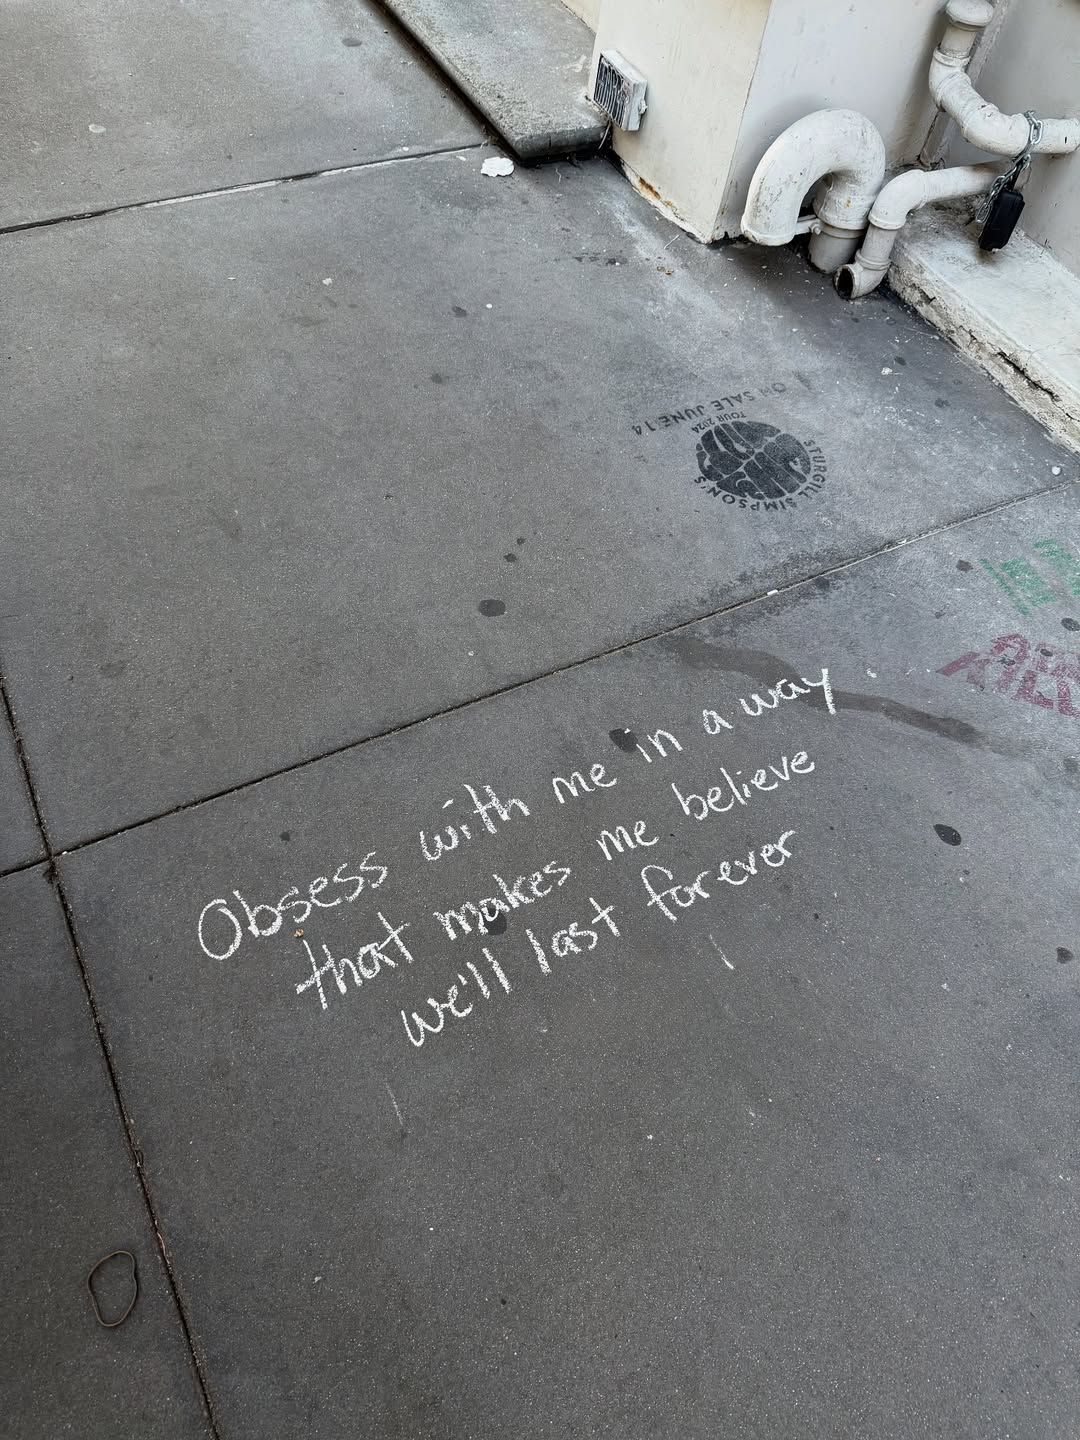 ON SALE JUNE 14
TOUR 2024
STURGILL SIMPSON'S
Obsess with me in a way
that makes me believe
we'll last forever